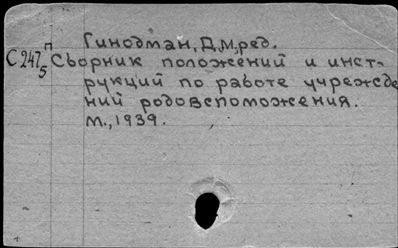 Гинодман, Д.М, ред.
С 247 П/5 Сборник положений и инст-
рукций по работе учрежде
ний родовспоможения.
М., 1939.